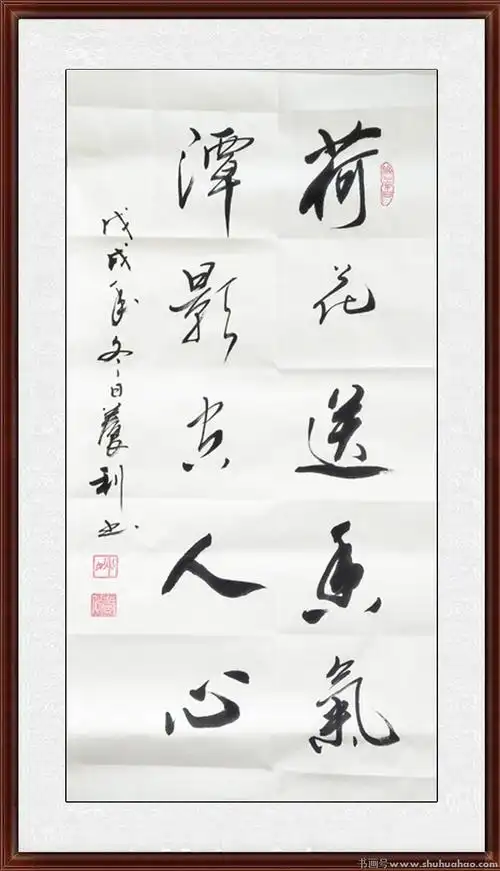 荷花送香氣
潭影空人心
戊戌年冬日養利书
书画号www.shuhuahao.com